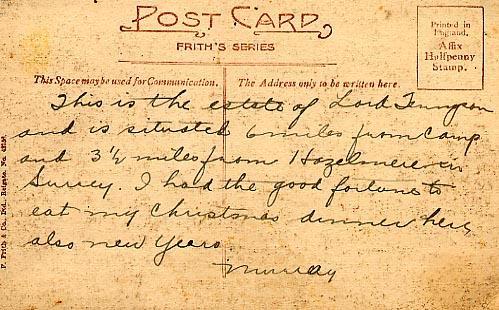 POST CARD
FRITH'S SERIES
Printed in
England.
Affix
Halfpenny
Stamp.
This Space may be used for Communication.
The Address only to be written here.
This is the estate of Lord Tennyson
and is situated 6 miles from camp
and 3½ miles from Hazelmere in
Surrey. I had the good fortune to
eat my Christmas dinner here,
also new years
Murray
F. Frith & Co., Ltd., Reigate. No.